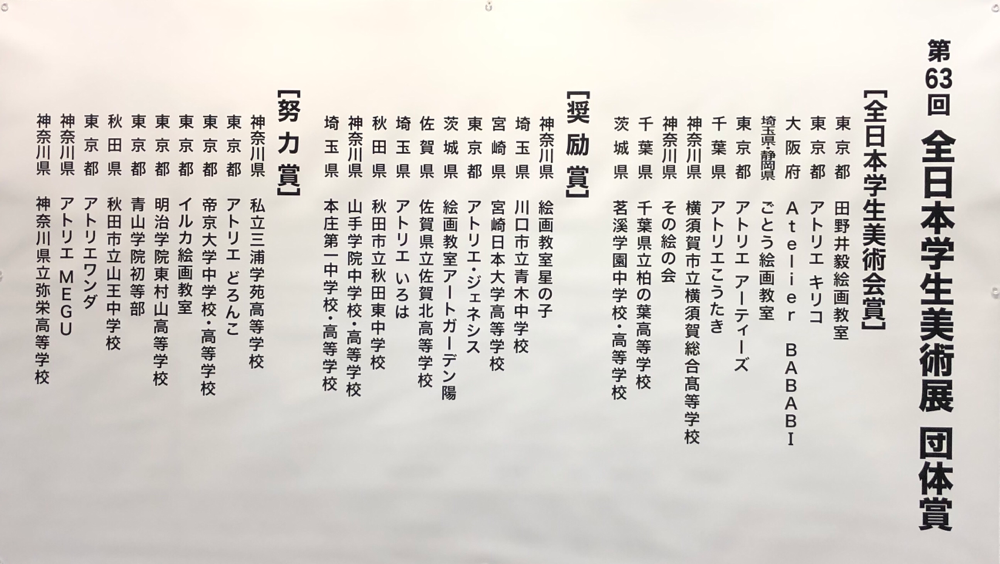 第63回 全日本学生美術展 団体賞
[全日本学生美術會賞]
東京都 田野井毅絵画教室
東京都 アトリエ キリコ
大阪府 Atelier BABABI
埼玉県・静岡県 ごとう絵画教室
東京都 アトリエ アーティーズ
千葉県 アトリエこうたき
神奈川県 横須賀市立横須賀総合高等学校
神奈川県 その絵の会
千葉県 千葉県立柏の葉高等学校
茨城県 茗溪学園中学校・高等学校
[奨励賞]
神奈川県 絵画教室星の子
埼玉県 川口市立青木中学校
宮崎県 宮崎日本大学高等学校
東京都 アトリエ・ジェネシス
茨城県 絵画教室アートガーデン陽
佐賀県 佐賀県立佐賀北高等学校
埼玉県 アトリエ いろは
秋田県 秋田市立秋田東中学校
神奈川県 山手学院中学校・高等学校
埼玉県 本庄第一中学校・高等学校
[努力賞]
神奈川県 私立三浦学苑高等学校
東京都 アトリエ どろんこ
東京都 帝京大学中学校・高等学校
東京都 イルカ絵画教室
東京都 明治学院東村山高等学校
東京都 青山学院初等部
秋田県 秋田市立山王中学校
東京都 アトリエワンダ
神奈川県 アトリエ MEGU
神奈川県 神奈川県立弥栄高等学校